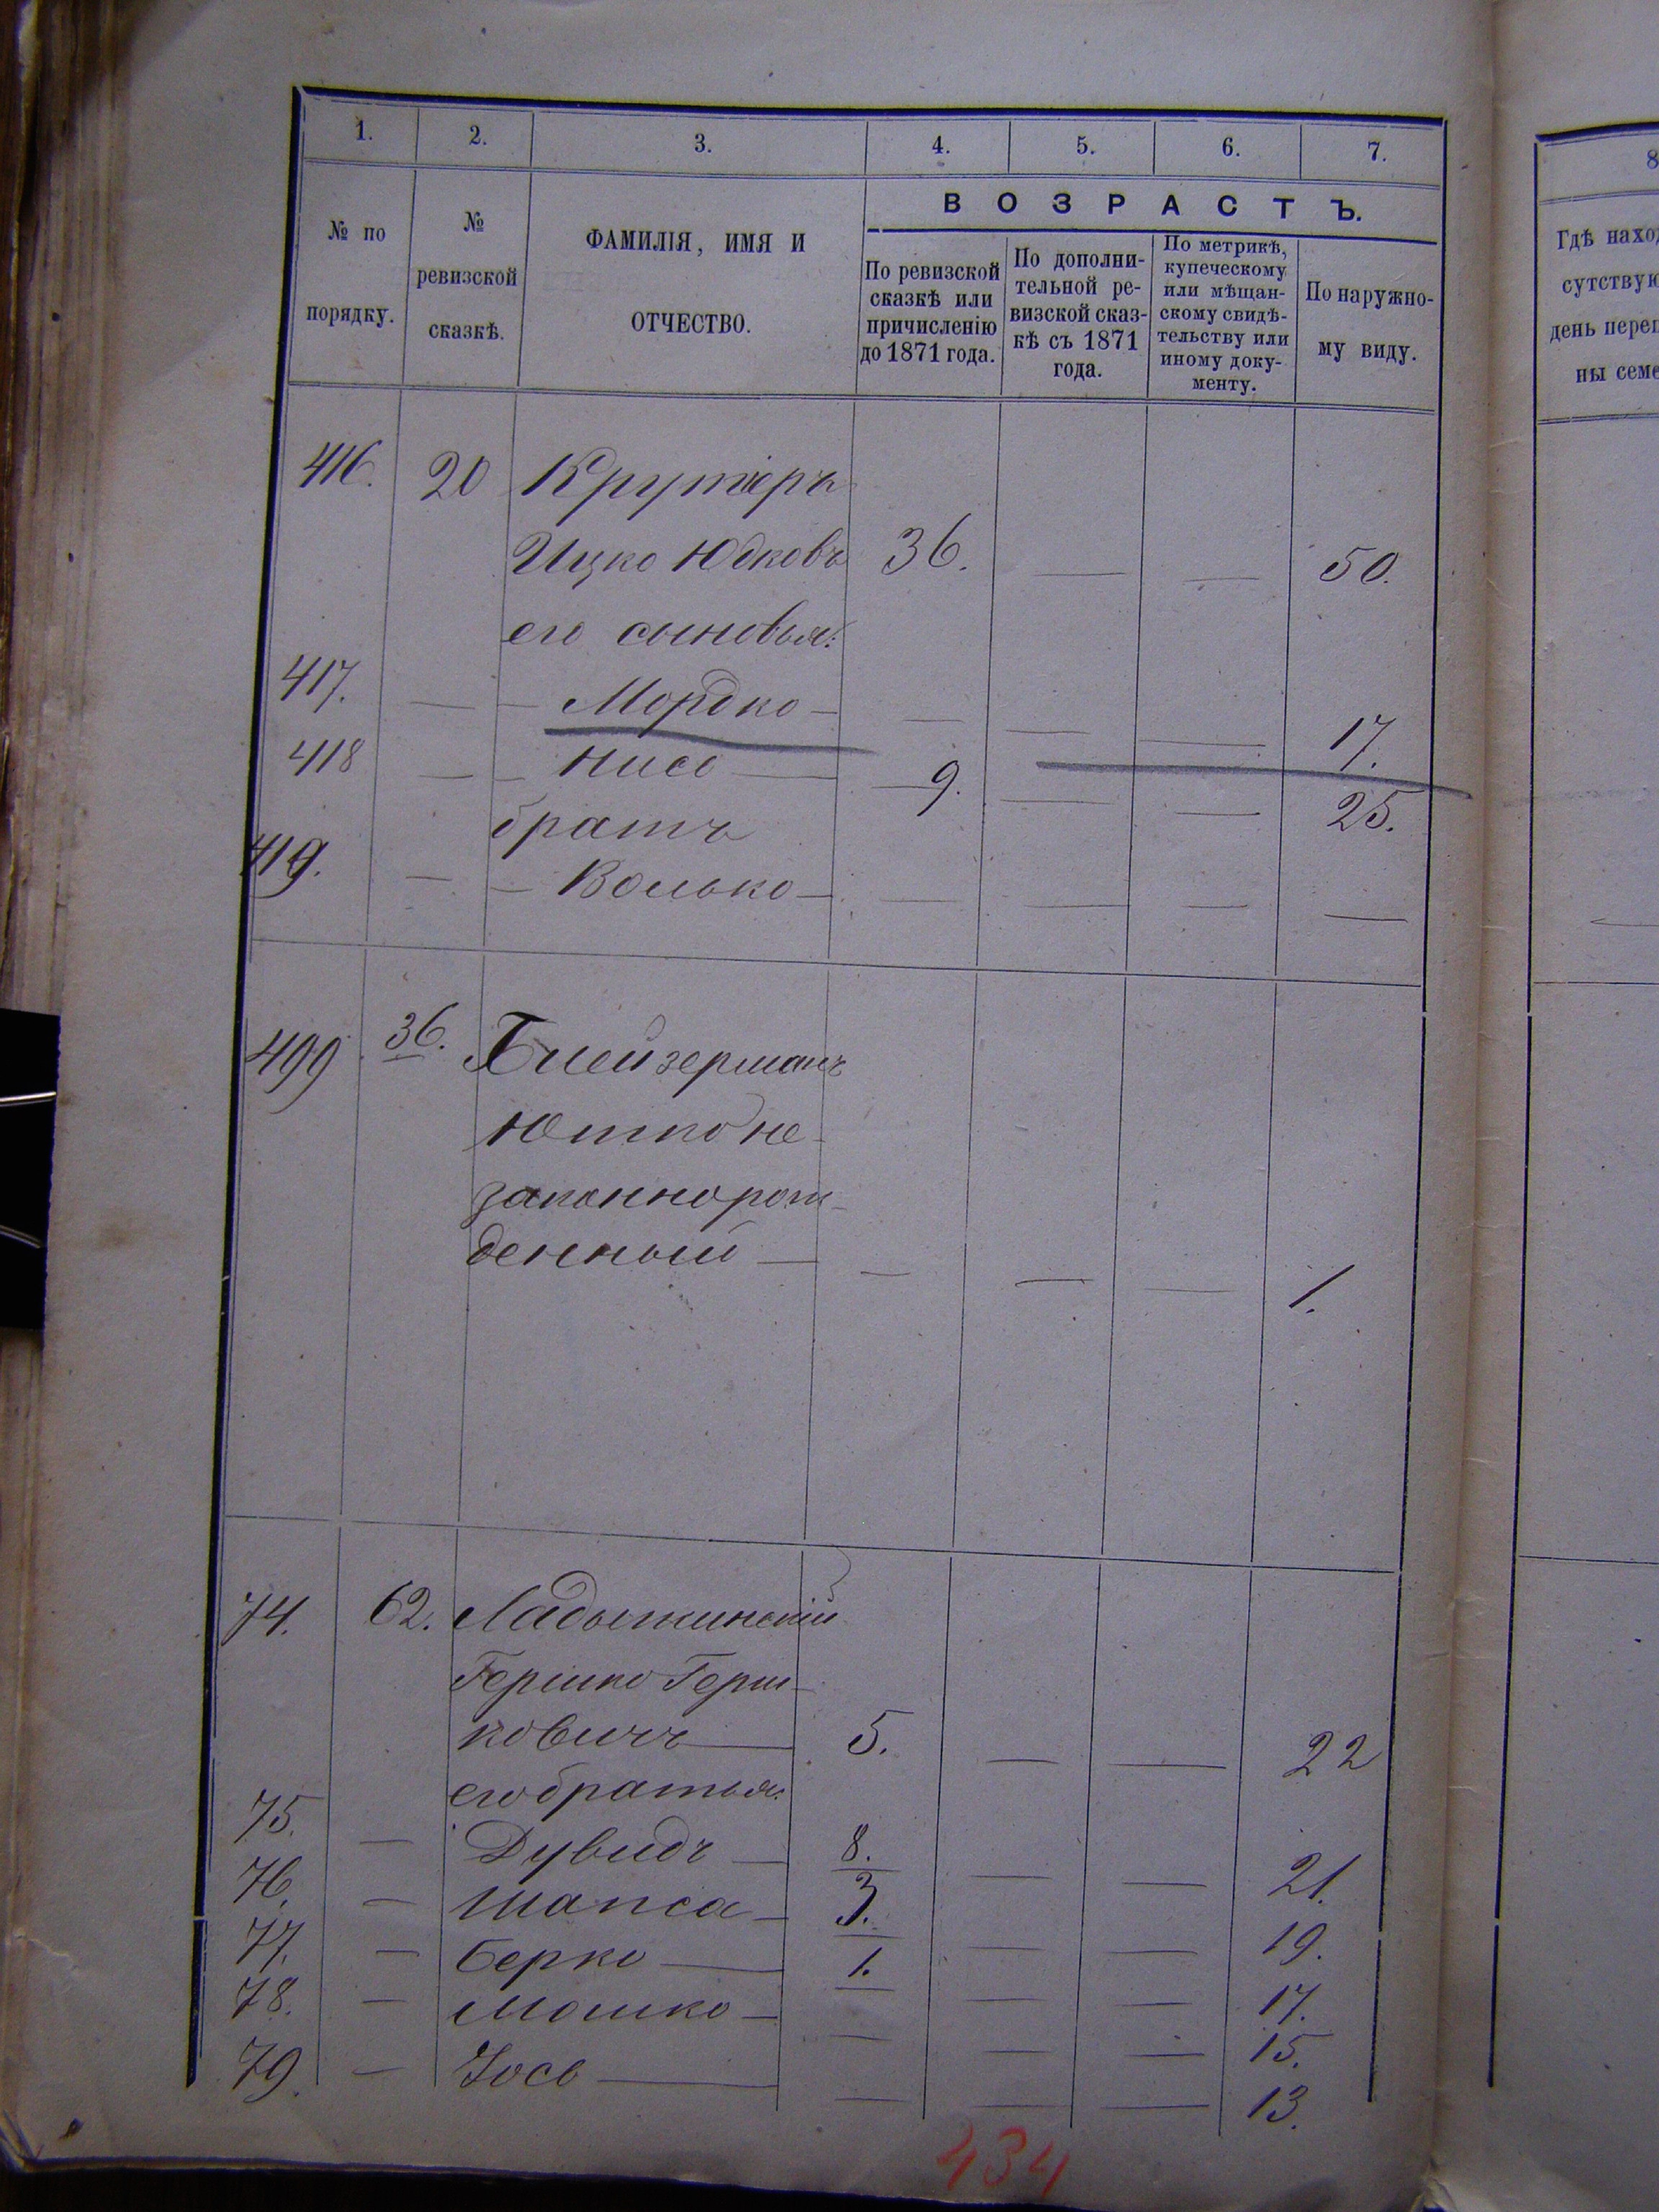 1. 2. 3. 4. 5. 6. 7.
№ по порядку.
№ ревизской сказкѣ.
ФАМИЛІЯ, ИМЯ И ОТЧЕСТВО.
ВОЗРАСТЪ.
По ревизской сказкѣ или причисленію до 1871 года.
По дополнительной ревизской сказкѣ съ 1871 года.
По метрикѣ, купеческому или мѣщанскому свидѣтельству или иному документу.
По наружному виду.
416. 20 Крутіеръ
Ицко Юдковъ 36. — — 50.
его сыновья:
417. — — Мордко — — — — 17.
418 — — Нисо — 9. — — 25.
братъ
419. — — Волько — — — — —
499 36. Блейзерманъ
Ютко не-
законнорож-
денный — — — — 1.
74. 62. Ладыжинскій
Гершко Герш-
ковичъ — 5. — — 22
его братья:
75. — Дувидъ — 8. — — 21.
76. — Шапса — 3. — — 19.
77. — Берко — 1. — — 17.
78. — Мошко — — — — 15.
79. — Іось — — — — 13.
434
8
Гдѣ наход
сутствую
день переп
ны семе